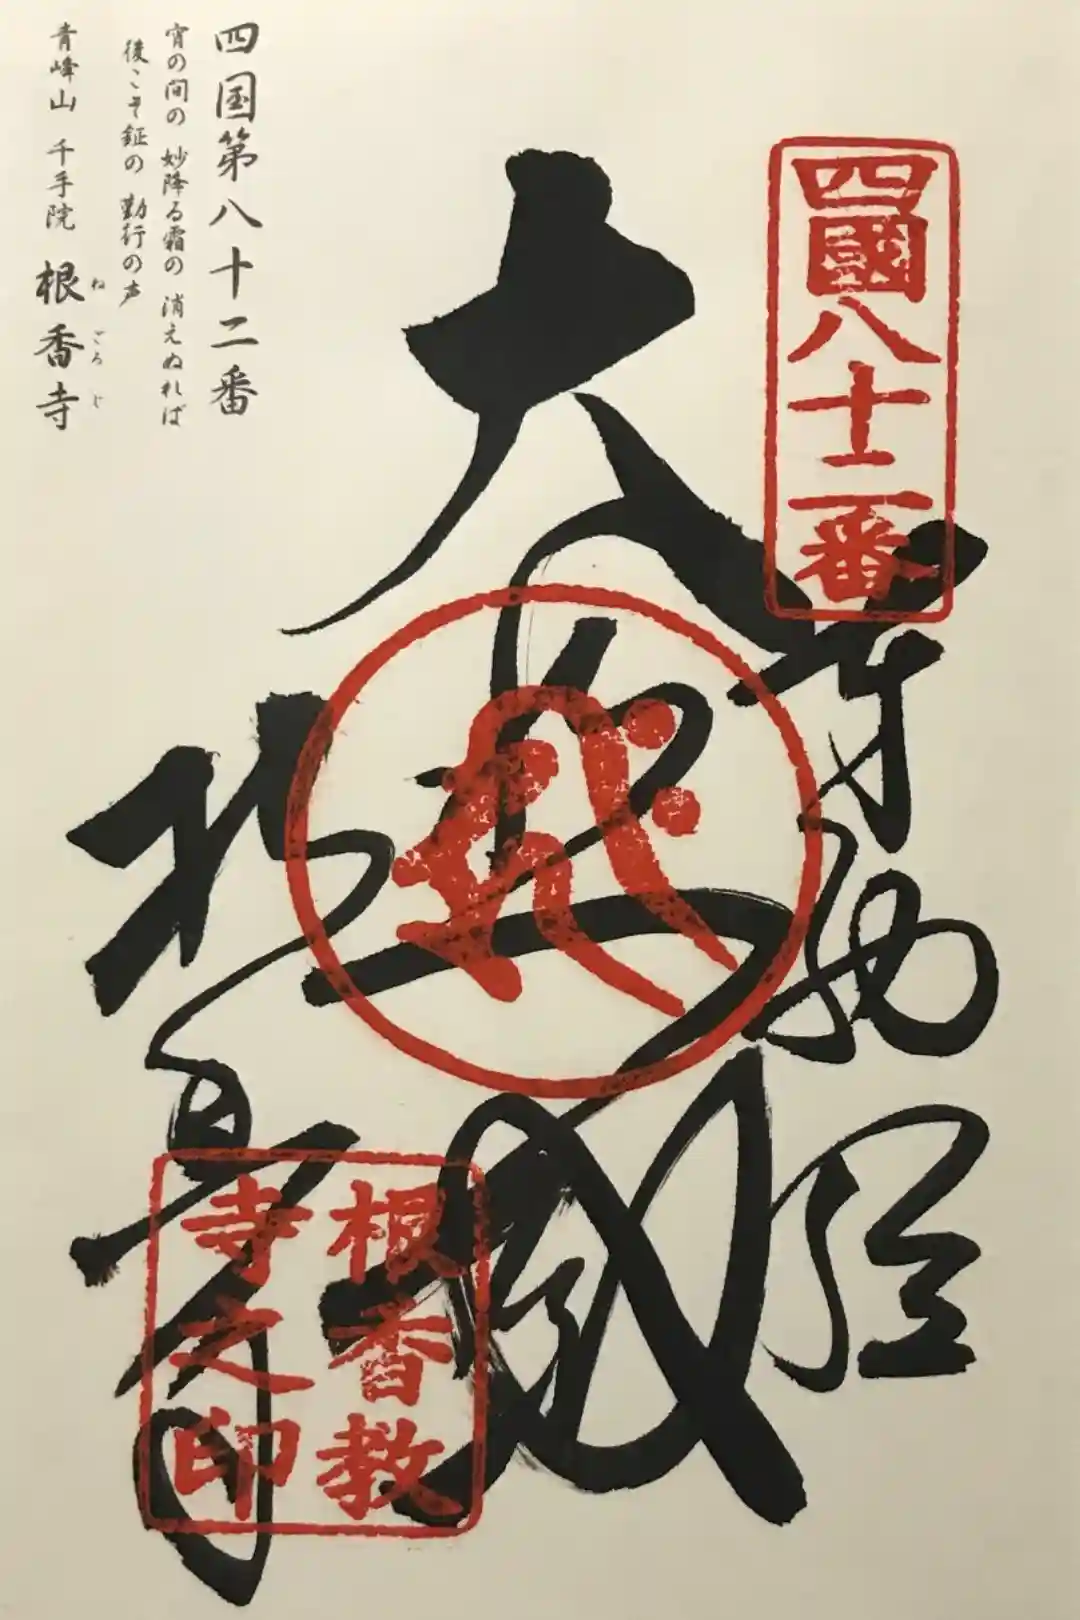 四國八十二番
奉納経
大悲殿
根香寺
根香教
寺之印
四国第八十二番
宵の間の 妙降る霜の 消えぬれば
後こそ鉦の 勤行の声
青峰山 千手院 根香寺
ねごろじ